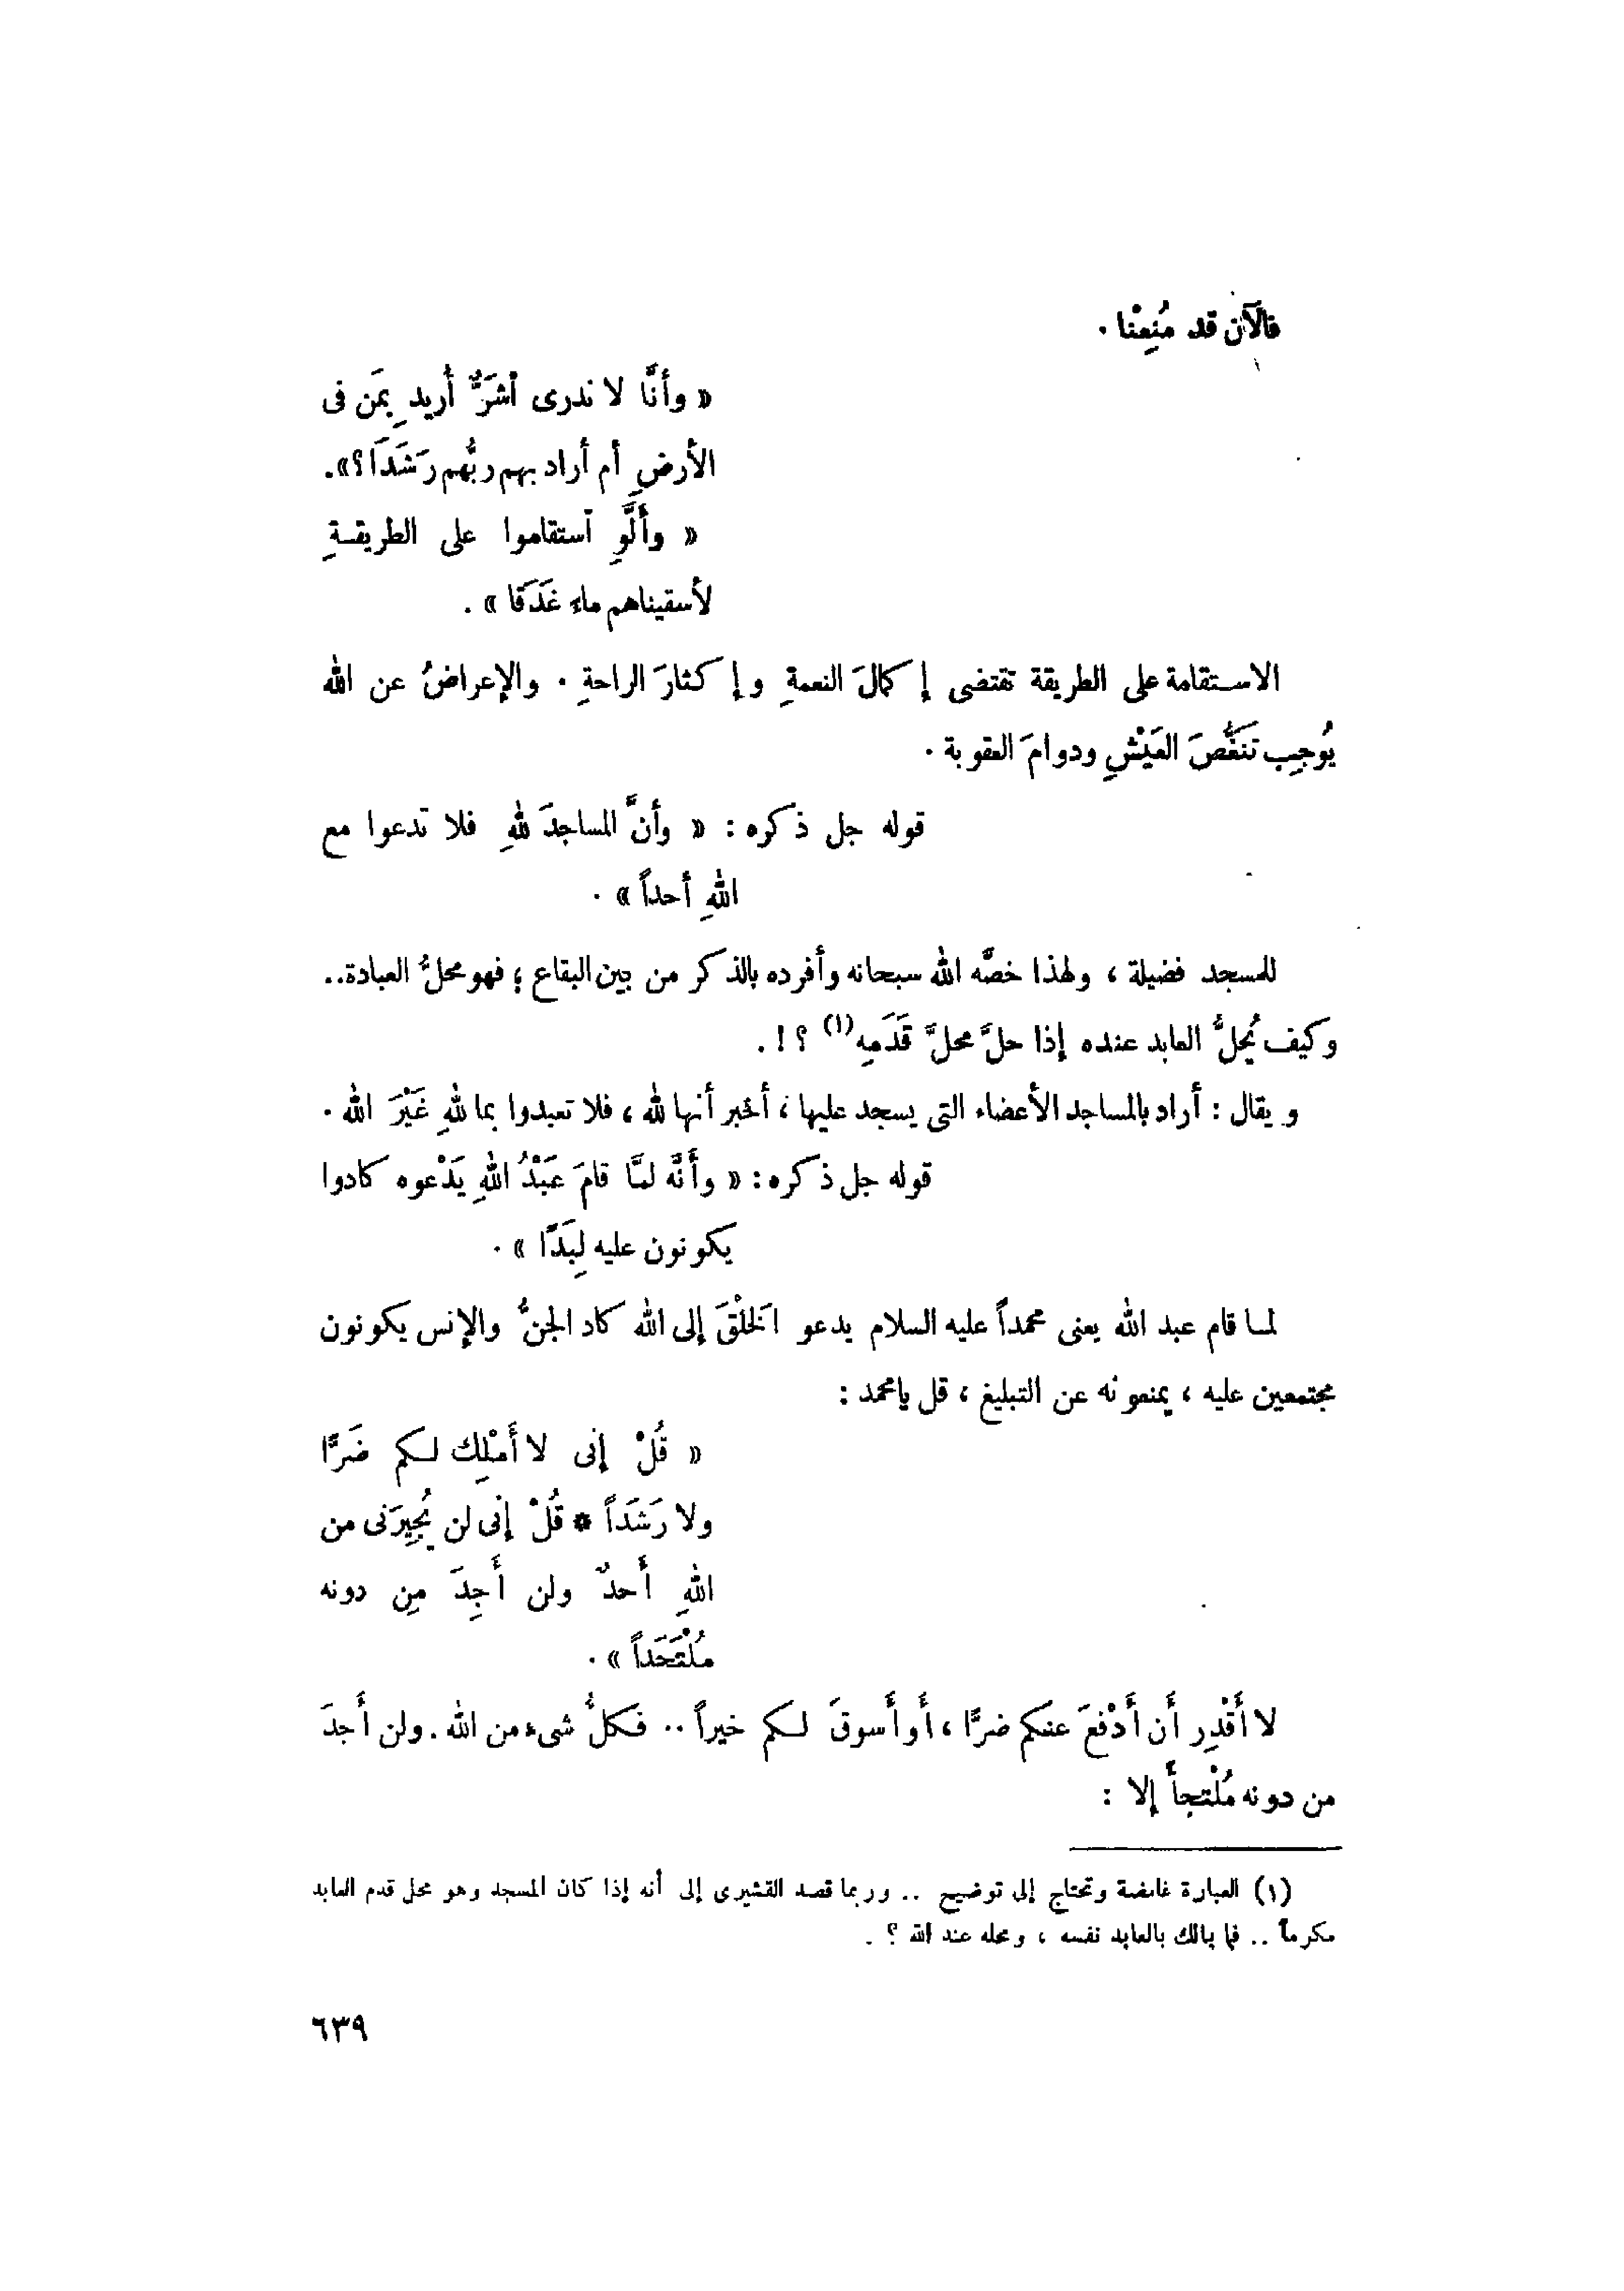 فالآن قد مُنِعْنا .
« وأنَّا لا ندرى أشَرٌّ أُريد بِمَن فى
الأرضِ أم أراد بهم ربُّهم رَشَدَا؟».
« وأَلَّوِ آستقاموا على الطريقـةِ
لأسقيناهم ماء غَدَقَا » .
الاسـتقامة على الطريقة تقتضى إكمالَ النعمةِ وإكثارَ الراحةِ . والإعراضُ عن الله
يُوجِب تَنَغُّصَ العَيْشِ ودوامَ العقوبة .
قوله جل ذكره : « وأنَّ المساجدَ للهِ فلا تدعوا مع
اللهِ أحداً » .
للمسجد فضيلة ، ولهذا خصَّه الله سبحانه وأفرده بالذكر من بين البقاع ؛ فهو محلُّ العبادة..
وكيف يُحلُّ العابد عنده إذا حلَّ محلَّ قَدَمِه(١) ؟ ! .
ويقال : أراد بالمساجد الأعضاء التى يسجد عليها ، أخبر أنها لله ، فلا تعبدوا بما للهِ غَيْرَ الله .
قوله جل ذكره : « وأَنَّه لمَّا قامَ عَبْدُ اللهِ يَدْعوه كادوا
يكونون عليه لِبَدًا » .
لمـا قام عبد الله يعنى محمداً عليه السلام يدعو الخَلْقَ إلى الله كاد الجنُّ والإنس يكونون
مجتمعين عليه ، يمنعونه عن التبليغ ، قل يا محمد :
« قُلْ إنى لا أَمْلِك لـكم ضَرًّا
ولا رَشَدَاً * قُلْ إنى لن يُجِيرَنى من
اللهِ أَحدٌ ولن أَجِدَ مِن دونه
مُلْتَحَداً » .
لا أَقْدِر أَن أَدْفعَ عنكم ضرًّا ، أَو أَسوقَ لـكم خيراً .. فـكلُّ شىء من الله . ولن أَجدَ
من دونه مُلْتجأً إلا :
(١) العبارة غامضة وتحتاج إلى توضيح .. وربما قصد القشيرى إلى أنه إذا كان المسجد وهو محل قدم العابد
مكرماً .. فما بالك بالعابد نفسه ، ومحله عند الله ؟ .
٦٣٩